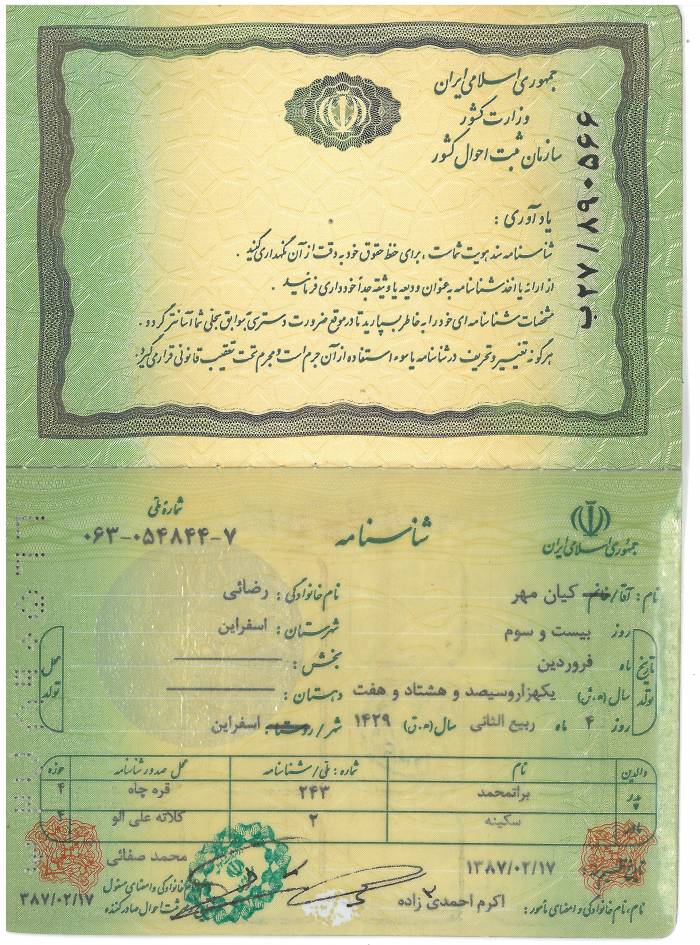 جمهوری اسلامی ایران
وزارت کشور
سازمان ثبت احوال کشور
ب ۲۷/۸۹۰۵۶۶
یادآوری :
شناسنامه سند هویت شماست ، برای حفظ حقوق خود به دقت از آن نگهداری کنید .
از ارائه یا اخذ شناسنامه به عنوان ودیعه یا وثیقه جداً خودداری فرمائید .
مشخصات شناسنامه ای خود را به خاطر بسپارید تا در موقع ضرورت دسترسی به سوابق سجلی شما آسانتر گردد .
هرگونه تغییر و تحریف در شناسنامه یا سوء استفاده از آن جرم است و مجرم تحت تعقیب قانونی قرار می گیرد .
جمهوری اسلامی ایران
شناسنامه
شماره ملی
۰۶۳-۰۵۴۸۴۴-۷
نام : آقا/خانم کیان مهر نام خانوادگی : رضائی
تاریخ تولد روز بیست و سوم شهرستان : اسفراین محل تولد
ماه فروردین بخش :
سال (ه.ش) یکهزاروسیصد و هشتاد و هفت دهستان :
روز ۴ ماه ربیع الثانی سال (ه.ق) ۱۴۲۹ شهر/روستا : اسفراین
والدین نام شماره : ملی/شناسنامه محل صدور شناسنامه حوزه
پدر براتمحمد ۲۴۳ قره چاه ۴
مادر سکینه ۲ کلاته علی الو ۴
تاریخ تنظیم : ۱۳۸۷/۰۲/۱۷ محمد صفائی
نام، نام خانوادگی و امضای مامور : اکرم احمدی زاده
نام خانوادگی و امضای مسئول
ثبت احوال صادر کننده
۳۸۷/۰۲/۱۷